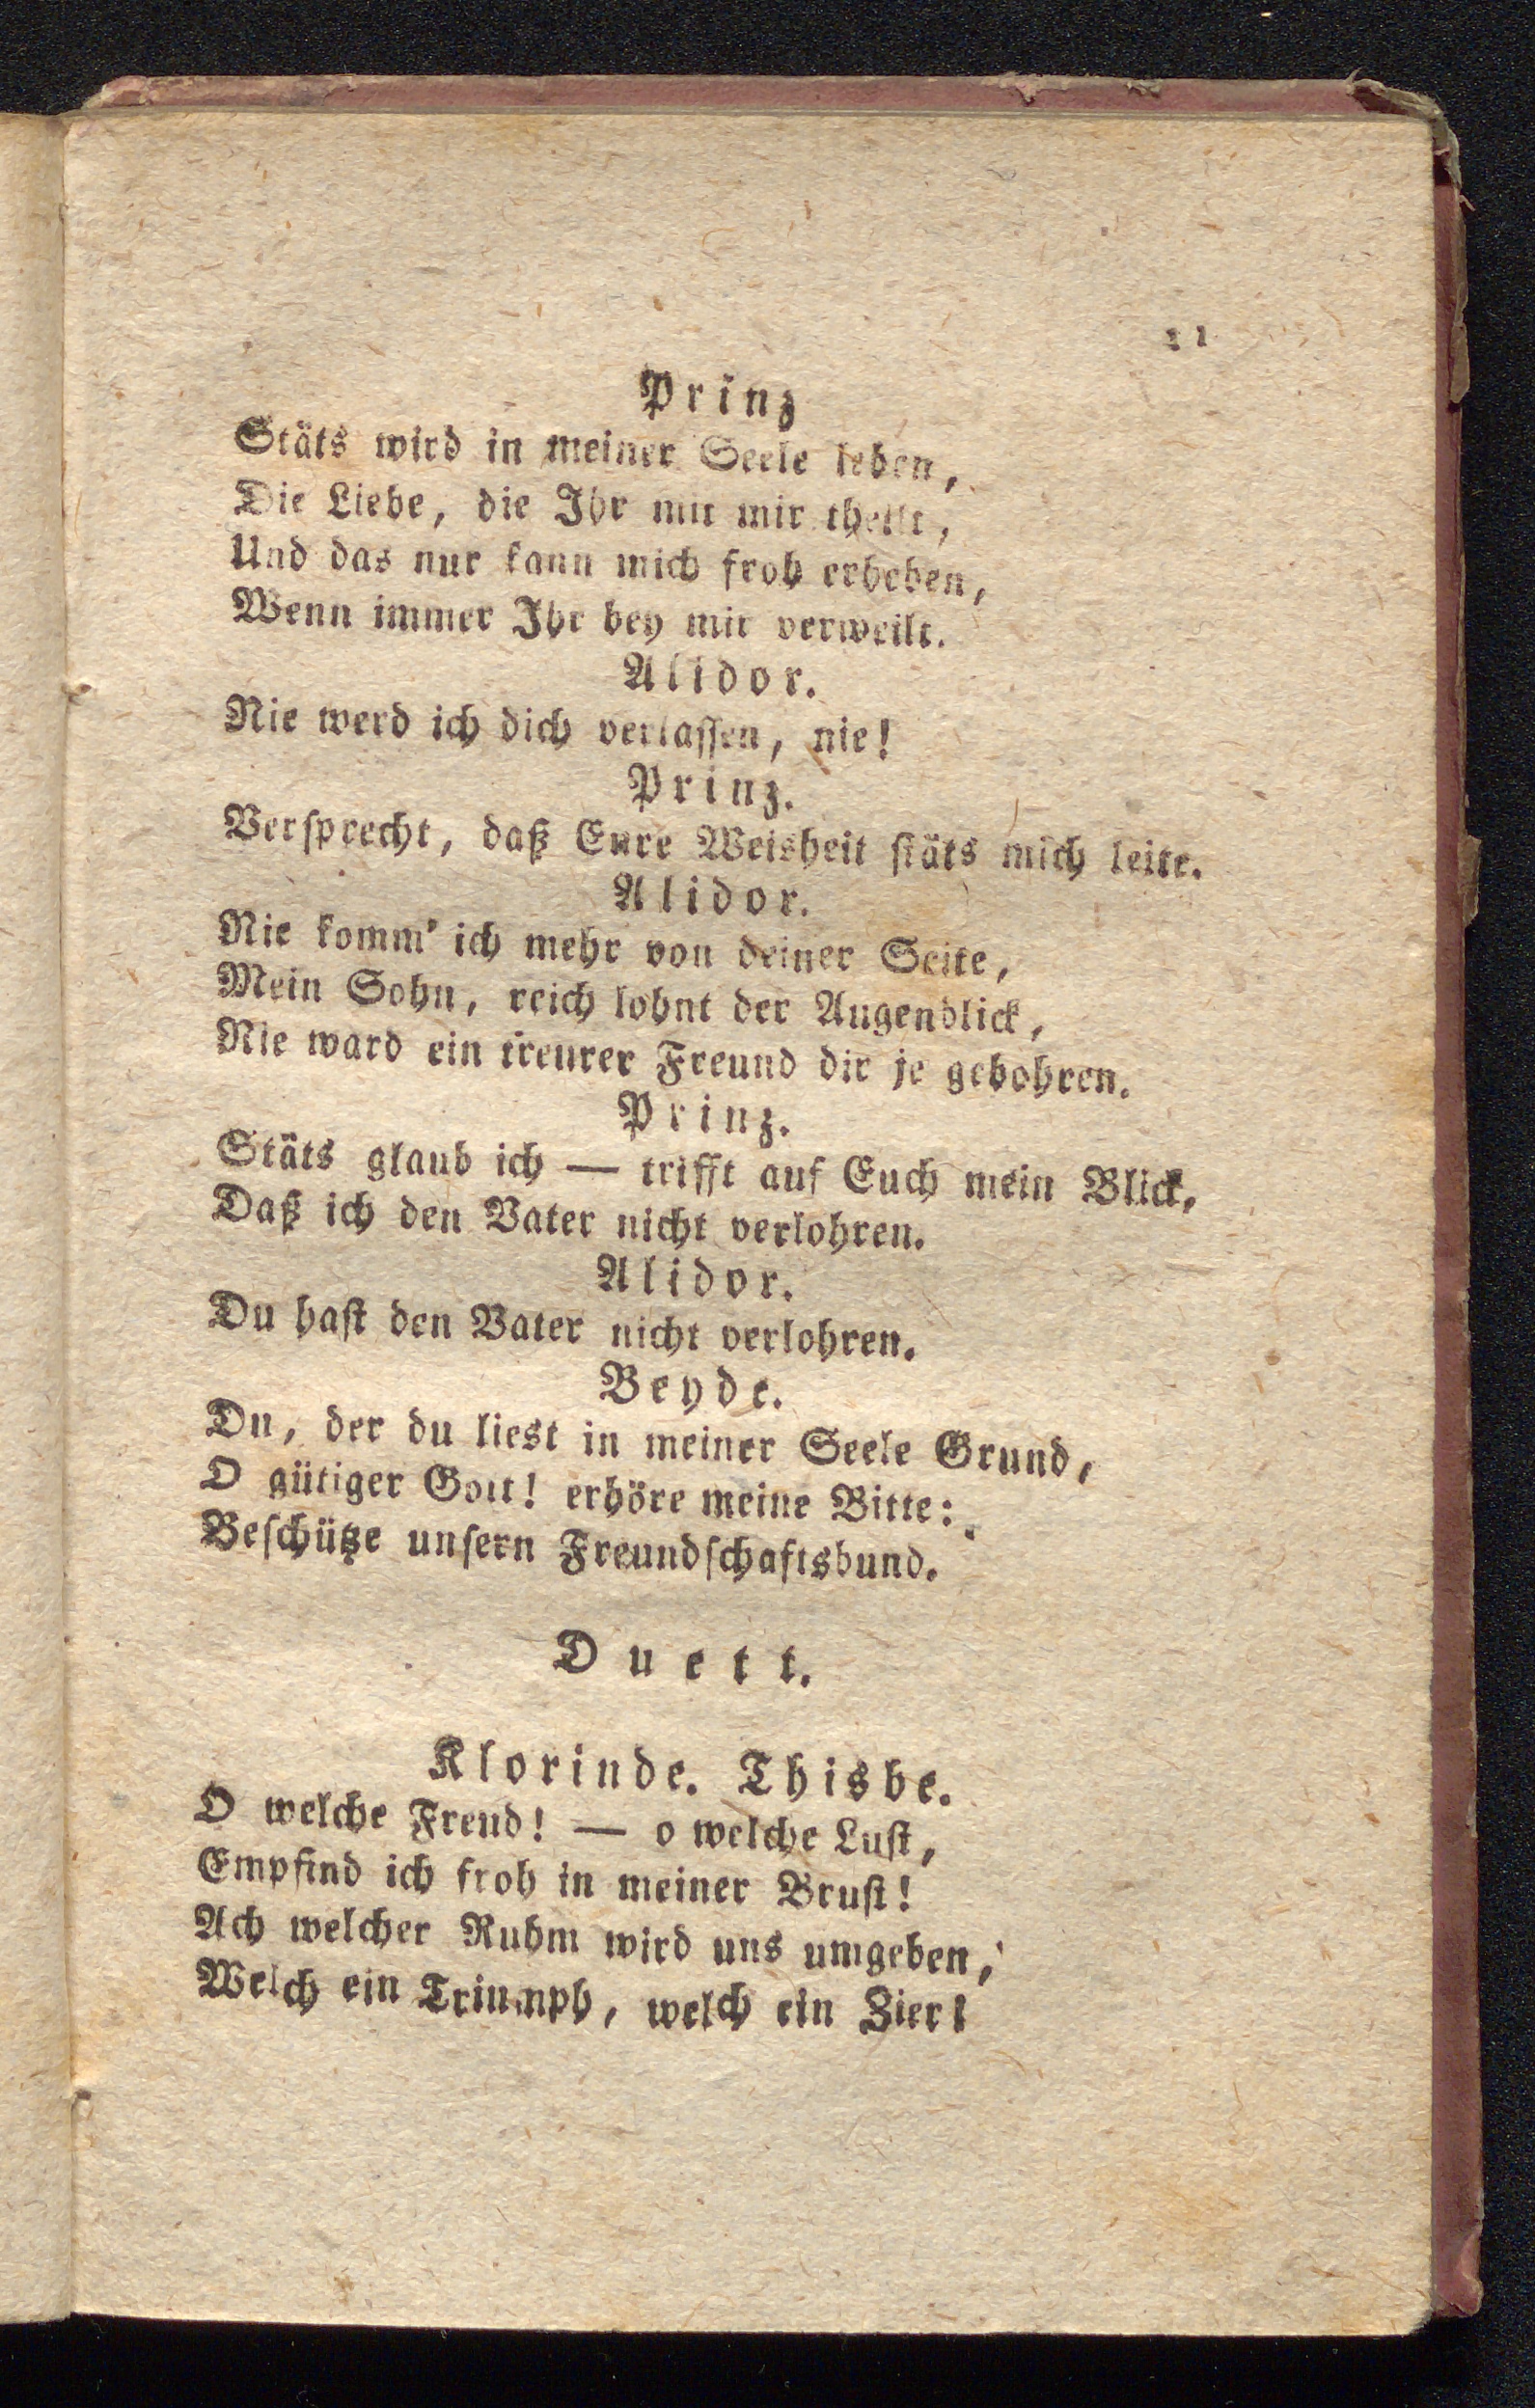 11
Prinz
Stäts wird in meiner Seele leben,
Die Liebe, die Ihr mit mir theilt,
Und das nur kann mich froh erheben,
Wenn immer Ihr bey mir verweilt.
Alidor.
Nie werd ich dich verlassen, nie!
Prinz.
Versprecht, daß Eure Weisheit stäts mich leite.
Alidor.
Nie komm' ich mehr von deiner Seite,
Mein Sohn, reich lohnt der Augenblick,
Nie ward ein treurer Freund dir je gebohren.
Prinz.
Stäts glaub ich — trifft auf Euch mein Blick,
Daß ich den Vater nicht verlohren.
Alidor.
Du hast den Vater nicht verlohren.
Beyde.
Du, der du liest in meiner Seele Grund,
O gütiger Gott! erhöre meine Bitte:
Beschütze unsern Freundschaftsbund.
Duett.
Klorinde. Thisbe.
O welche Freud! — o welche Lust,
Empfind ich froh in meiner Brust!
Ach welcher Ruhm wird uns umgeben,
Welch ein Triumph, welch ein Zier!